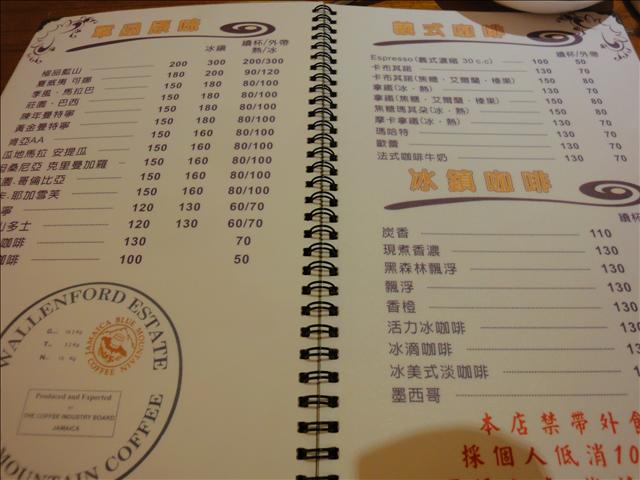 單品原味
冰鎮 續杯/外帶
熱/冰
極品藍山 200 300 200/300
夏威夷 可娜 180 200 90/120
季風．馬拉巴 150 180 80/100
莊園．巴西 150 180 80/100
陳年曼特寧 150 180 80/100
黃金曼特寧 150 180 80/100
肯亞AA 150 160 80/100
瓜地馬拉 安提瓜 150 160 80/100
坦桑尼亞 克里曼加羅 150 160 80/100
園．哥倫比亞 150 160 80/100
卡．耶加雪芙 150 160 80/100
寧 120 130 60/70
多士 120 130 60/70
咖啡 130 70
咖啡 100 50
WALLENFORD ESTATE
JAMAICA BLUE MOUNTAIN
COFFEE
Produced and Exported
BY
THE COFFEE INDUSTRY BOARD
JAMAICA
MOUNTAIN COFFEE
義式咖啡
續杯/外帶
Espresso(義式濃縮 30 c.c) 100 50
卡布其諾 130 70
卡布其諾(焦糖．艾爾蘭．榛果) 150 80
拿鐵(冰．熱) 130 70
拿鐵(焦糖．艾爾蘭．榛果) 150 80
焦糖瑪其朵(冰．熱) 150 80
摩卡拿鐵(冰．熱) 130 70
瑪哈特 130 70
歐蕾 130 70
法式咖啡牛奶 130 70
冰鎮咖啡
續杯
炭香 110
現煮香濃 130
黑森林飄浮 130
飄浮 130
香橙 130
活力冰咖啡 130
冰滴咖啡 130
冰美式淡咖啡
墨西哥
本店禁帶外
採個人低消10